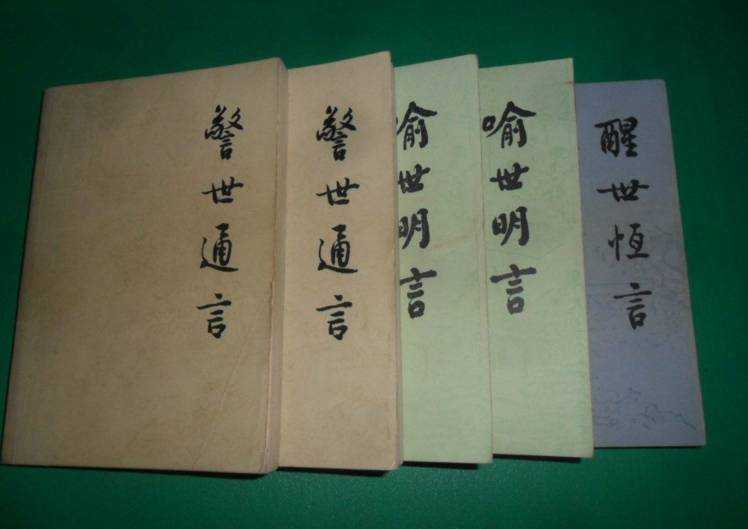 警世通言
警世通言
喻世明言
喻世明言
醒世恒言